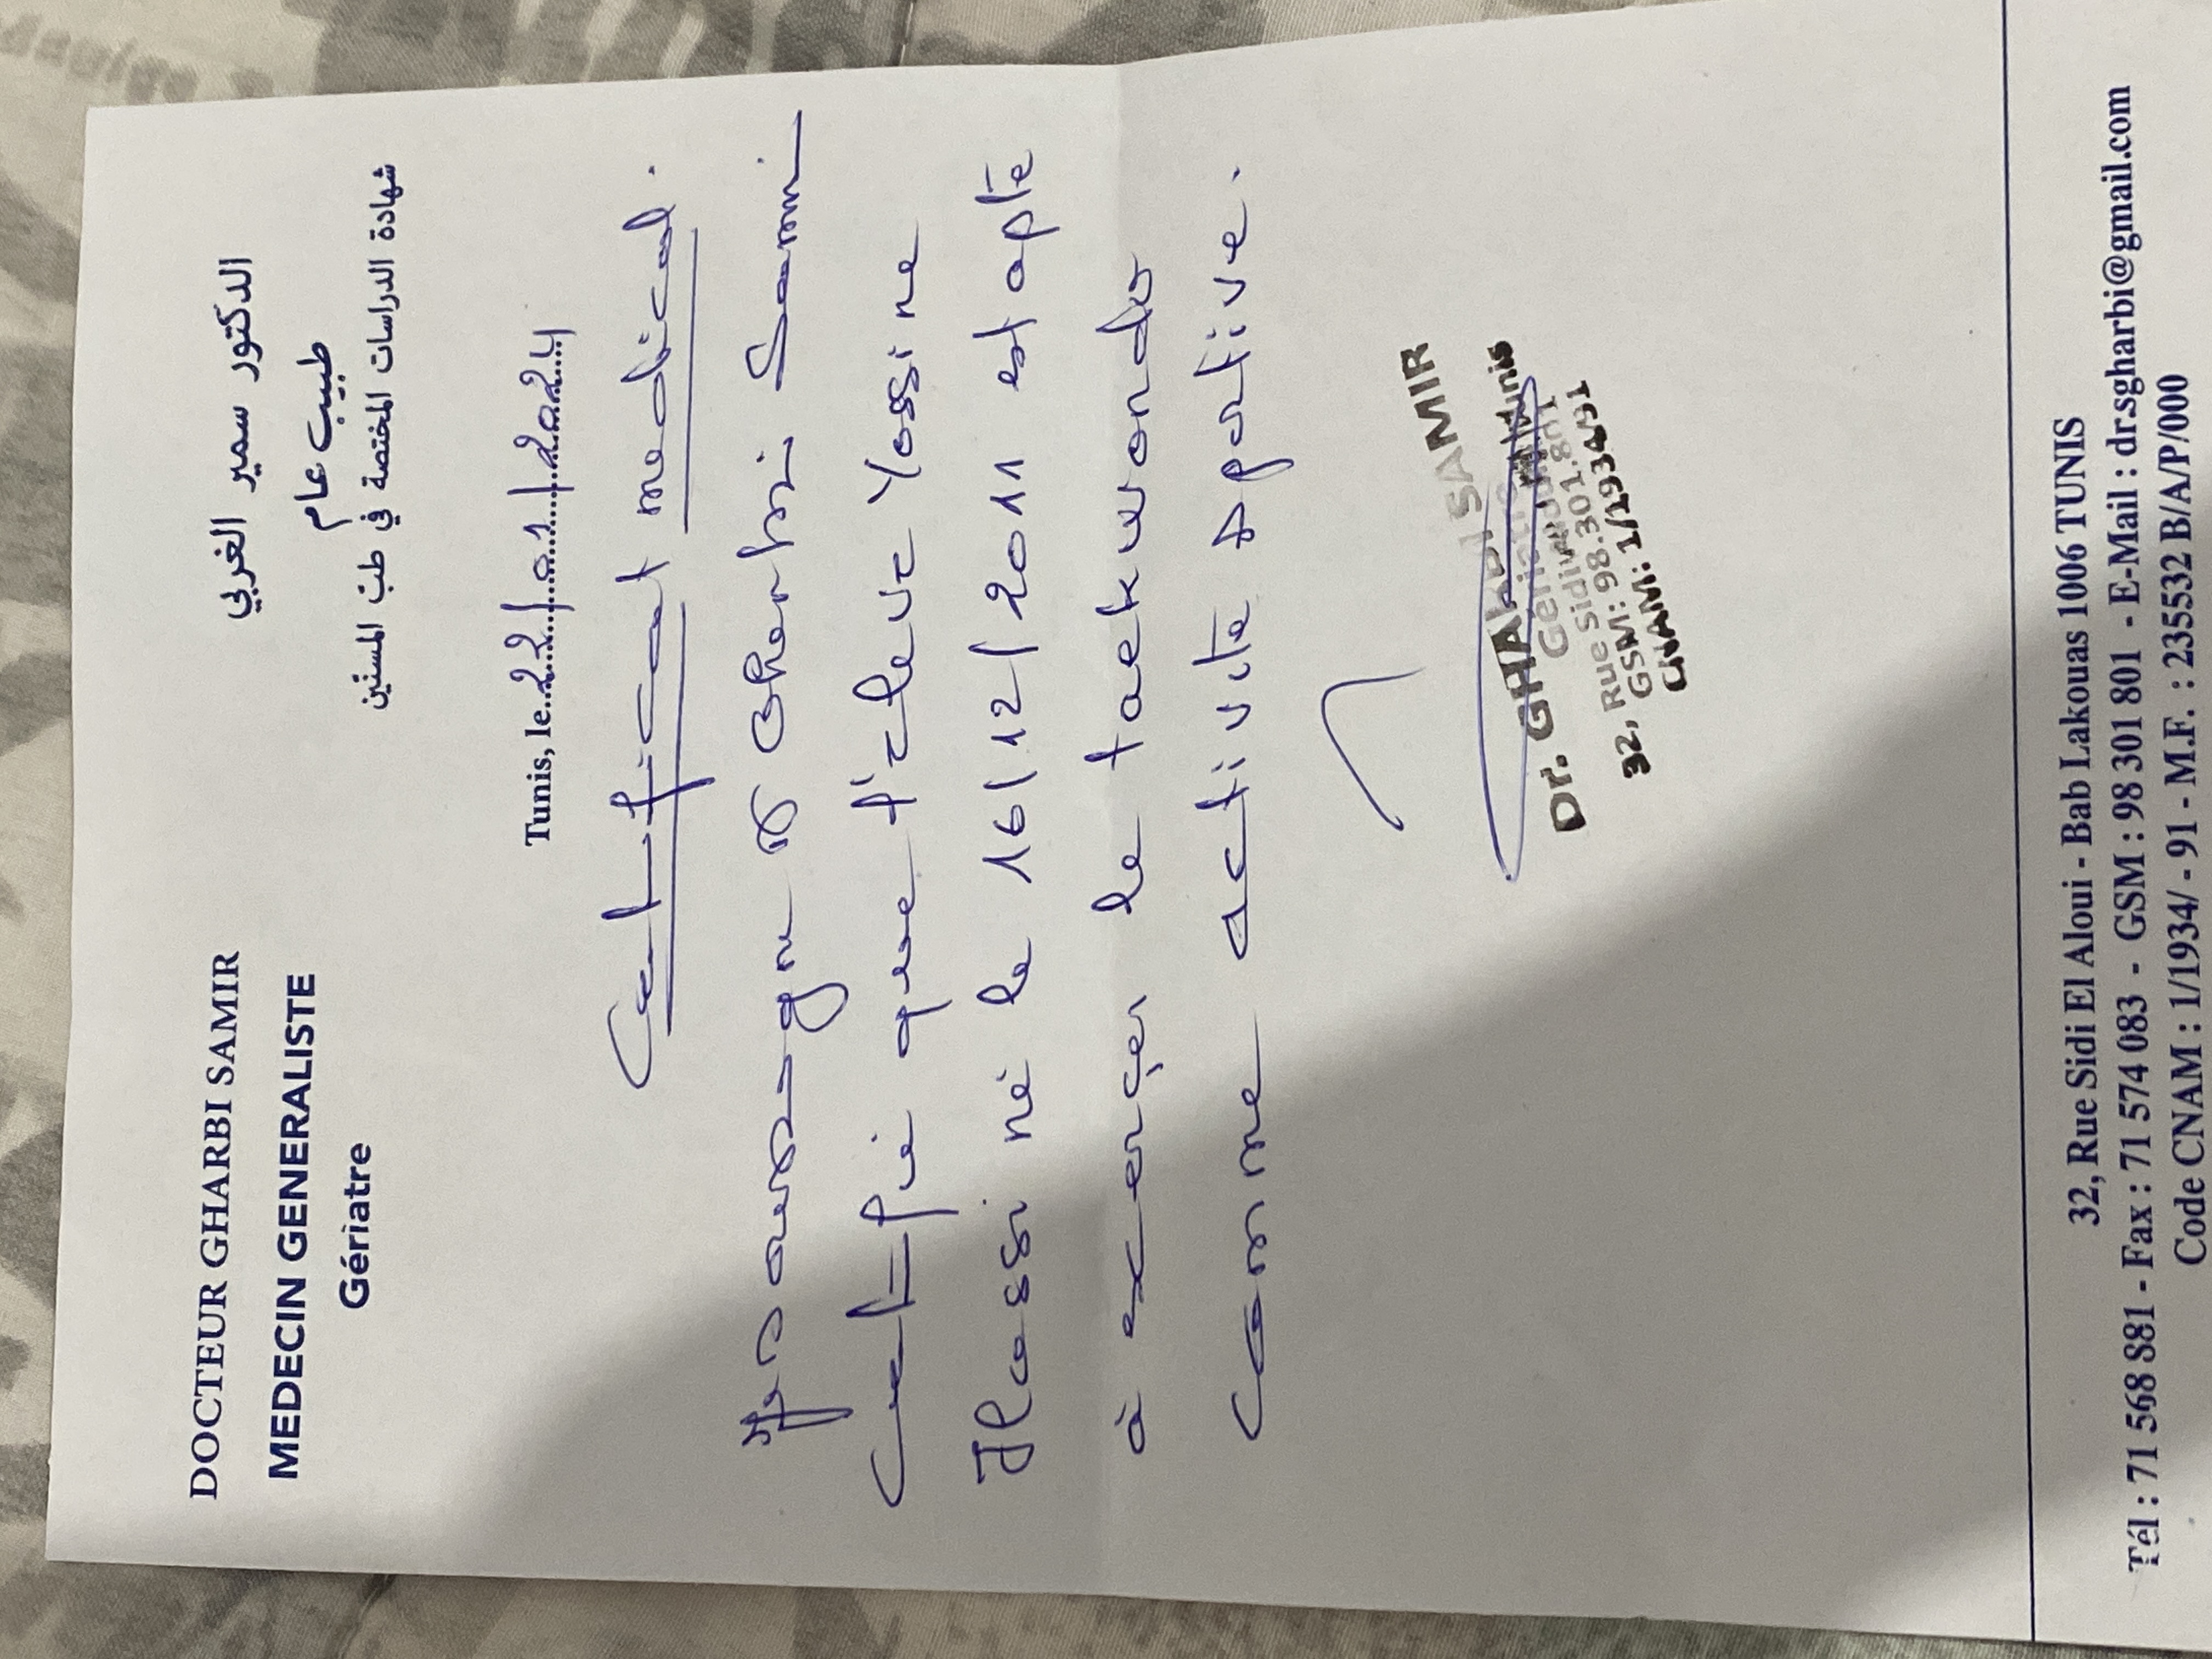 DOCTEUR GHARBI SAMIR
MEDECIN GENERALISTE
Gériatre
الدكتور سمير الغربي
طبيب عام
شهادة الدراسات المختصة في طب المسنين
Tunis, le 22/01/2024
Certificat medical.
Je soussigné Dr Gharbi Samir
Certifié que l'élève Yassine
Hassi né le 16/12/2011 est apte
à exerçer le taekwondo
comme activité sportive.
Dr. GHARBI SAMIR
32, Rue Sidi
GSM: 98.301.801
CNAM: 1/1934/91
32, Rue Sidi El Aloui - Bab Lakouas 1006 TUNIS
Tél : 71 568 881 - Fax : 71 574 083 - GSM : 98 301 801 - E-Mail : dr.sgharbi@gmail.com
Code CNAM : 1/1934/ - 91 - M.F. : 235532 B/A/P/000